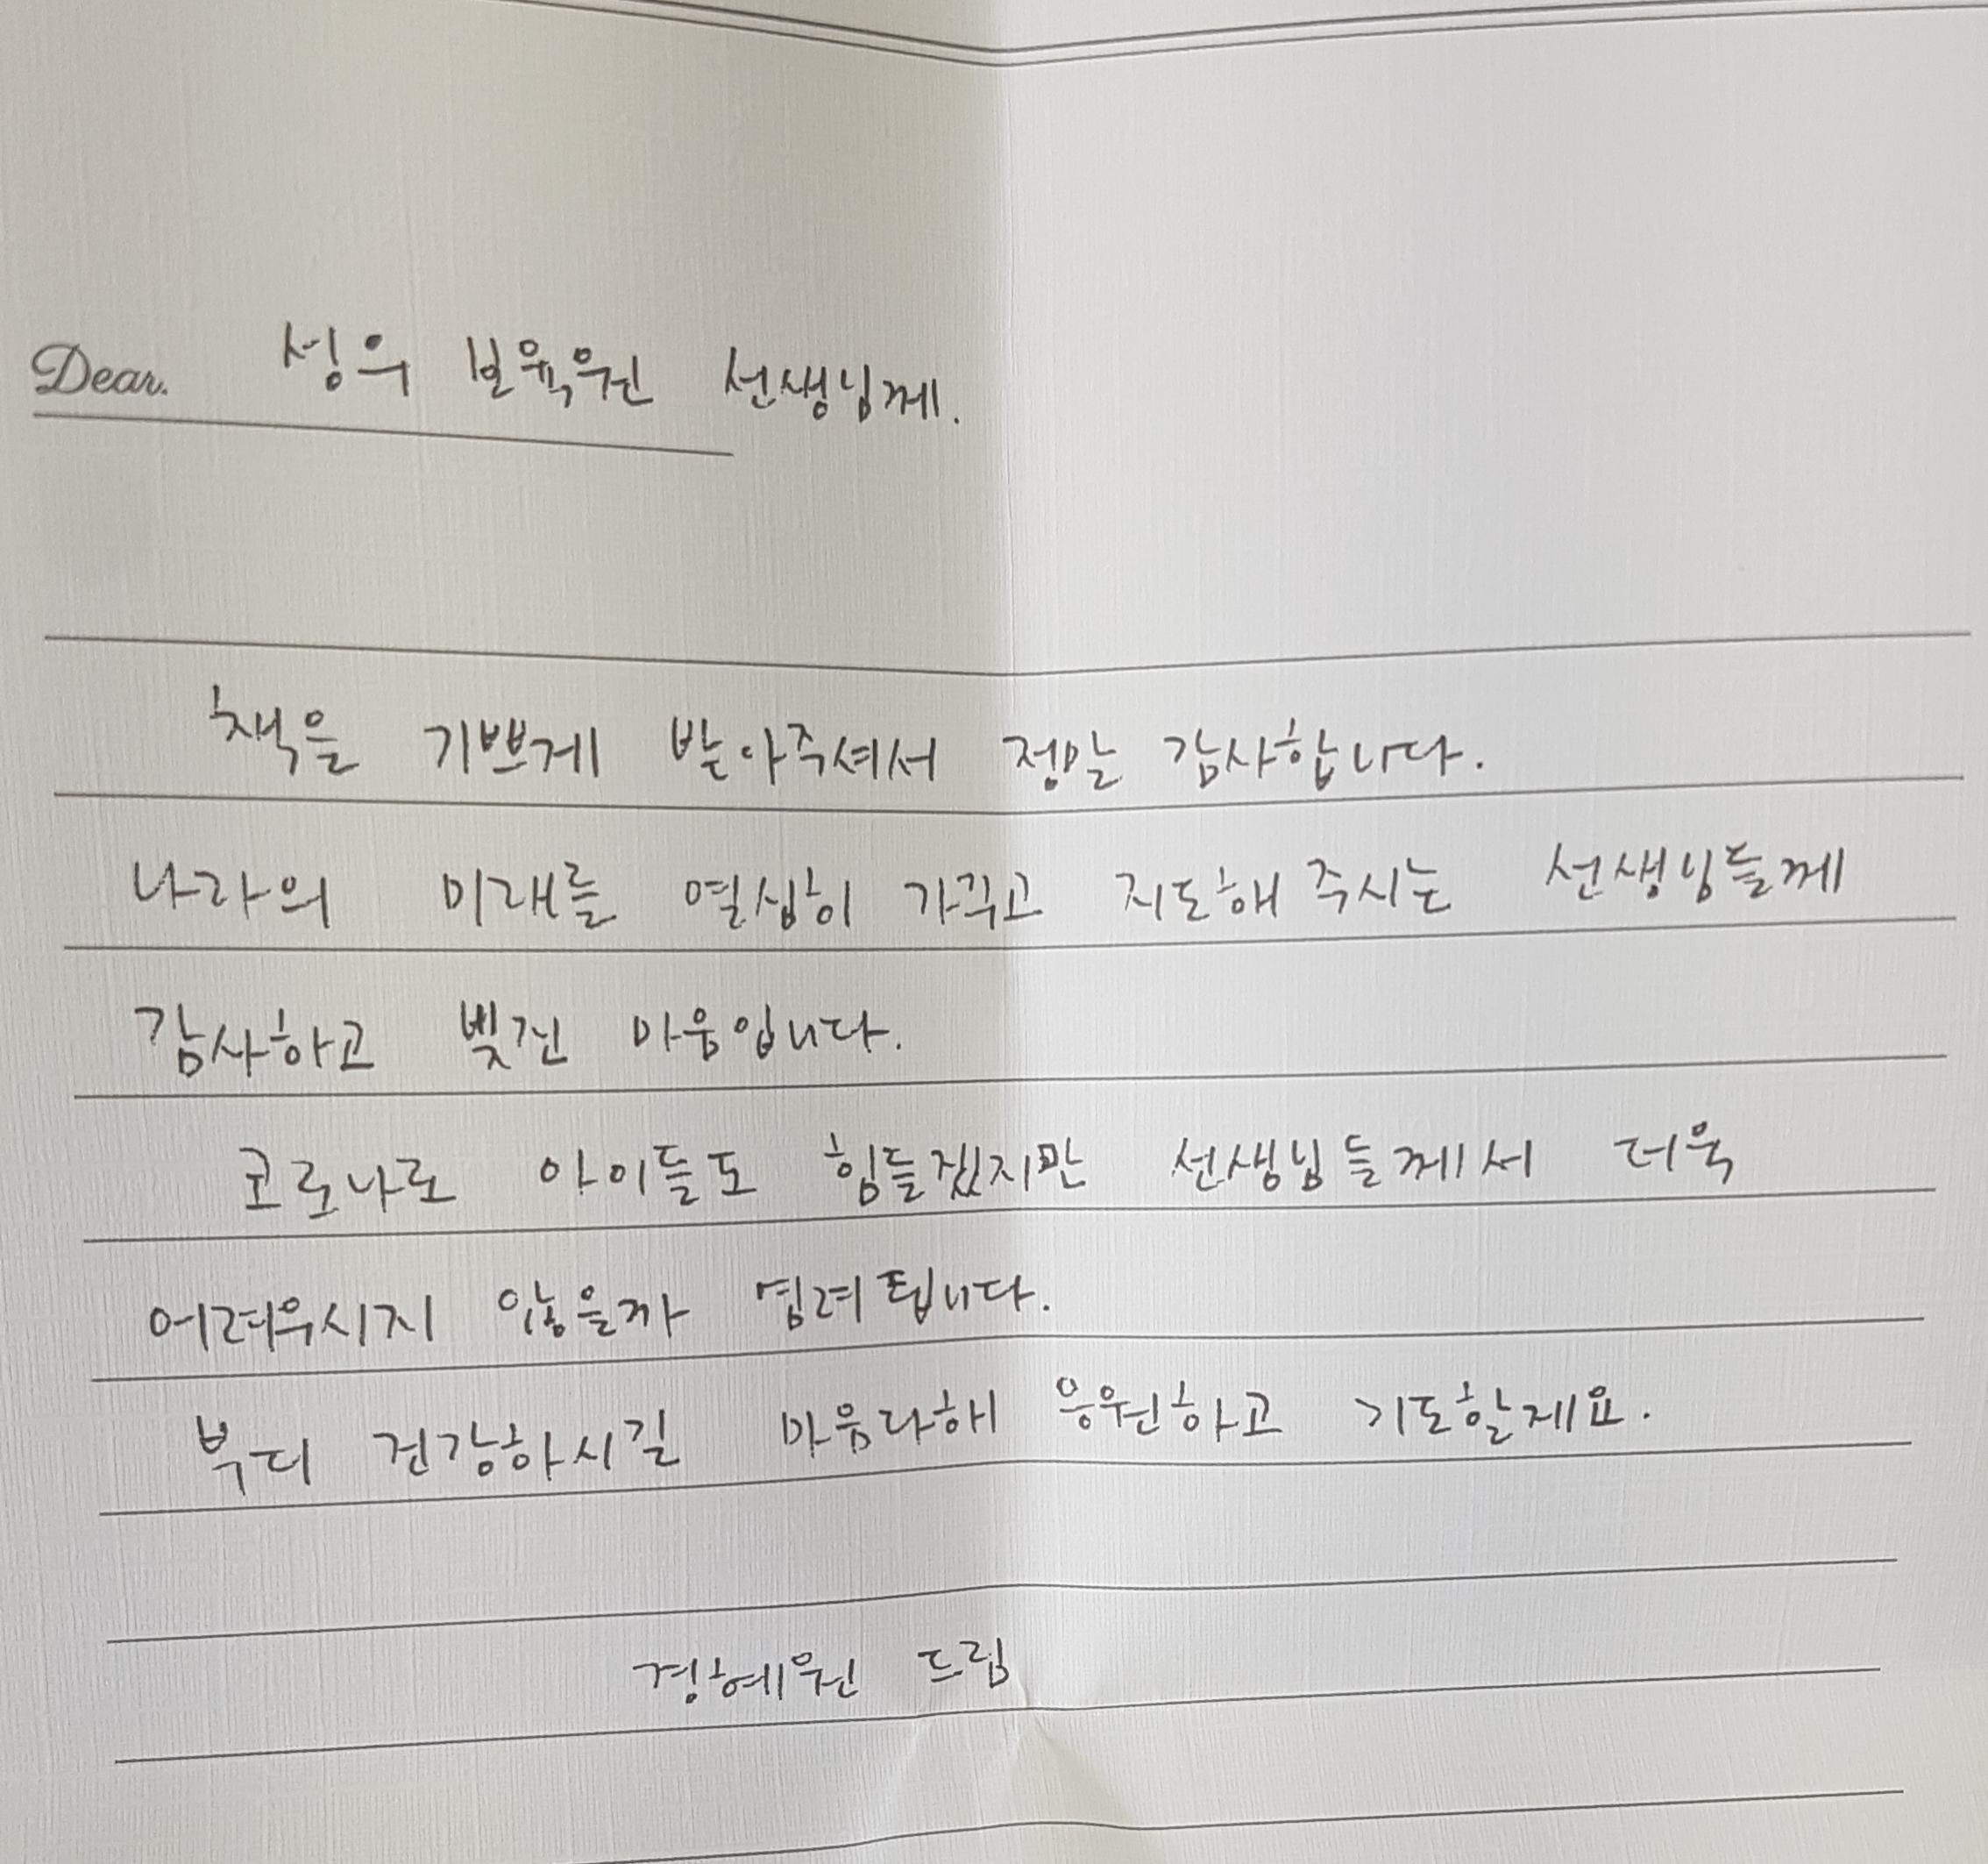 Dear. 성의 보육원 선생님께.
책을 기쁘게 받아주셔서 정말 감사합니다.
나라의 미래를 열심히 가꾸고 지도해 주시는 선생님들께
감사하고 빚진 마음입니다.
코로나로 아이들도 힘들겠지만 선생님들께서 더욱
어려우시지 않을까 염려 됩니다.
부디 건강하시길 마음다해 응원하고 기도할게요.
경혜원 드림